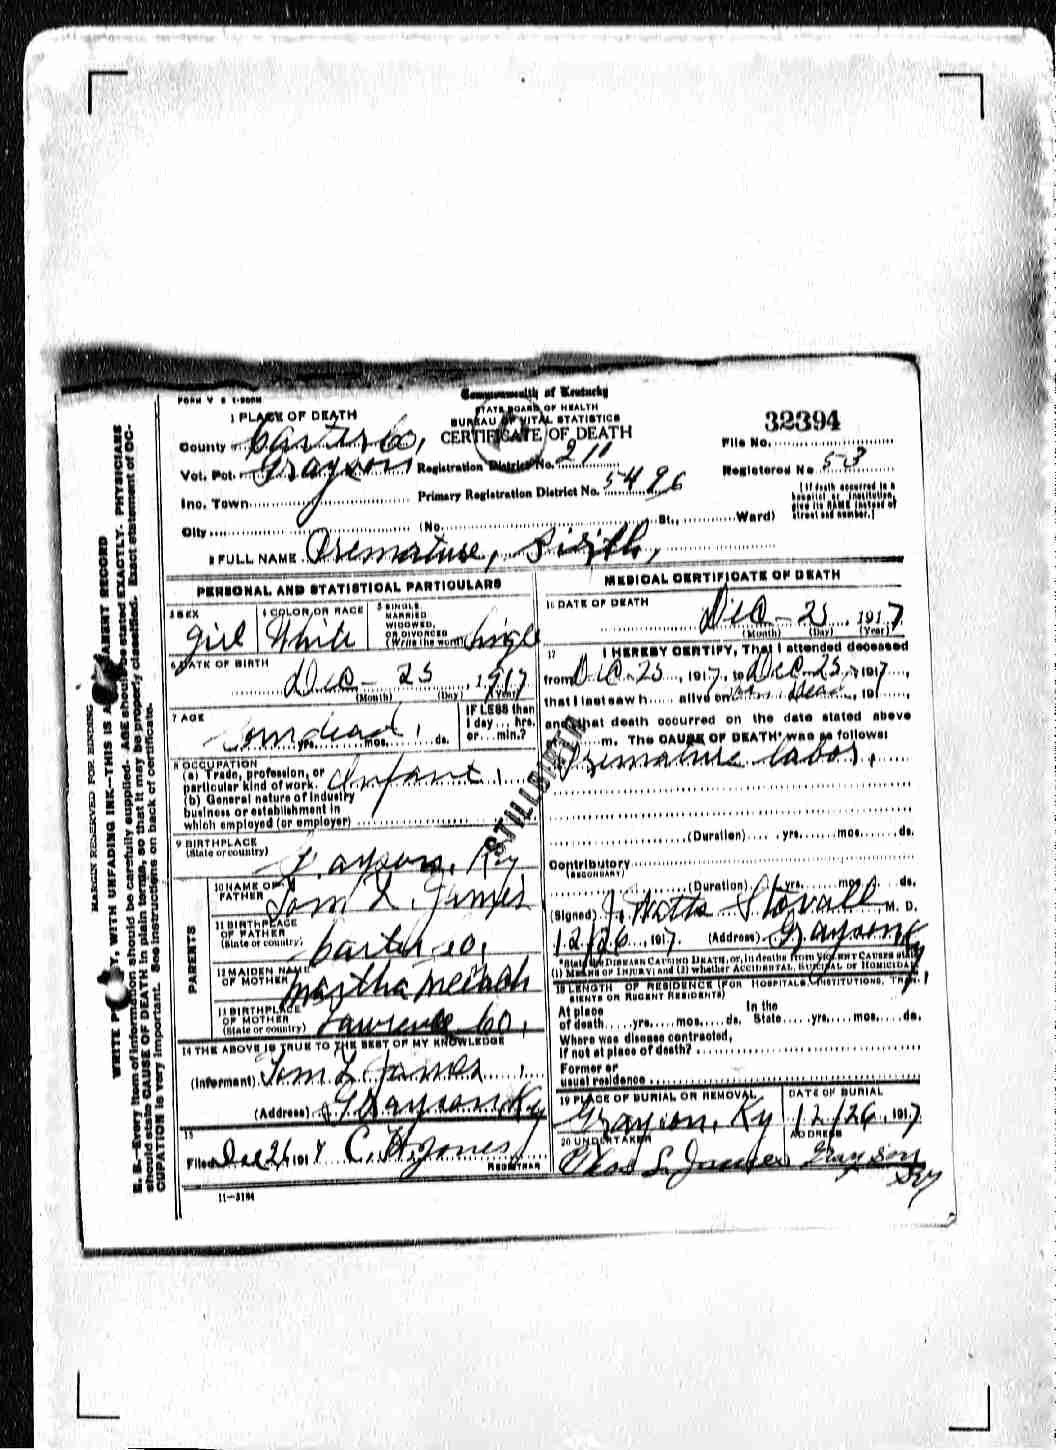 FORM V S 1-200M
Commonwealth of Kentucky
STATE BOARD OF HEALTH
BUREAU OF VITAL STATISTICS
CERTIFICATE OF DEATH
32394
File No.
Registered No 53
[If death occurred in a hospital or institution, give its NAME instead of street and number.]
1 PLACE OF DEATH
County Carter Co,
Vot. Pct. Grayson Registration District No. 211
Inc. Town Primary Registration District No. 5496
City (No. St., Ward)
2 FULL NAME Premature, Birth,
PERSONAL AND STATISTICAL PARTICULARS
3 SEX girl
4 COLOR OR RACE White
5 SINGLE, MARRIED, WIDOWED, OR DIVORCED (Write the word) Single
6 DATE OF BIRTH
Dec - 25, 1917
(Month) (Day) (Year)
7 AGE
Born dead, yrs. mos. ds.
IF LESS than 1 day... hrs. or... min.?
8 OCCUPATION
(a) Trade, profession, or particular kind of work. Infant,
(b) General nature of industry
business or establishment in
which employed (or employer)
9 BIRTHPLACE
(State or country)
Grayson, Ky
PARENTS
10 NAME OF FATHER Tom L. James
11 BIRTHPLACE OF FATHER (State or country) Carter co,
12 MAIDEN NAME OF MOTHER Martha
13 BIRTHPLACE OF MOTHER (State or country) Lawrence Co,
14 THE ABOVE IS TRUE TO THE BEST OF MY KNOWLEDGE
(Informant) Tom L James
(Address) Grayson, Ky
15
Filed Dec 26 191 C. H. Jones
REGISTRAR
11-3184
STILLBIRTH
MEDICAL CERTIFICATE OF DEATH
16 DATE OF DEATH
Dec - 25, 1917
(Month) (Day) (Year)
17 I HEREBY CERTIFY, That I attended deceased
from Dec 25, 1917, to Dec 25, 1917,
that I last saw h alive on Dead, 191
and that death occurred on the date stated above
m. The CAUSE OF DEATH* was as follows:
Premature labor,
(Duration) yrs. mos. ds.
Contributory
(SECONDARY)
(Duration) yrs. mos. ds.
(Signed) J. Watts Stovall M. D.
12/26, 1917. (Address) Grayson Ky
*State the DISEASE CAUSING DEATH, or, in deaths from VIOLENT CAUSES state
(1) MEANS OF INJURY; and (2) whether ACCIDENTAL, SUICIDAL or HOMICIDAL
18 LENGTH OF RESIDENCE (FOR HOSPITALS, INSTITUTIONS, TRANSIENTS OR RECENT RESIDENTS)
At place of death yrs. mos. ds. In the State yrs. mos. ds.
Where was disease contracted,
if not at place of death?
Former or
usual residence
19 PLACE OF BURIAL OR REMOVAL DATE OF BURIAL
Grayson, Ky 12/26, 1917
20 UNDERTAKER ADDRESS
L. James Grayson Ky
MARGIN RESERVED FOR BINDING
WRITE PLAINLY, WITH UNFADING INK—THIS IS A PERMANENT RECORD
N. B.—Every item of information should be carefully supplied. AGE should be stated EXACTLY. PHYSICIANS
should state CAUSE OF DEATH in plain terms, so that it may be properly classified. Exact statement of OC-
CUPATION is very important. See instructions on back of certificate.